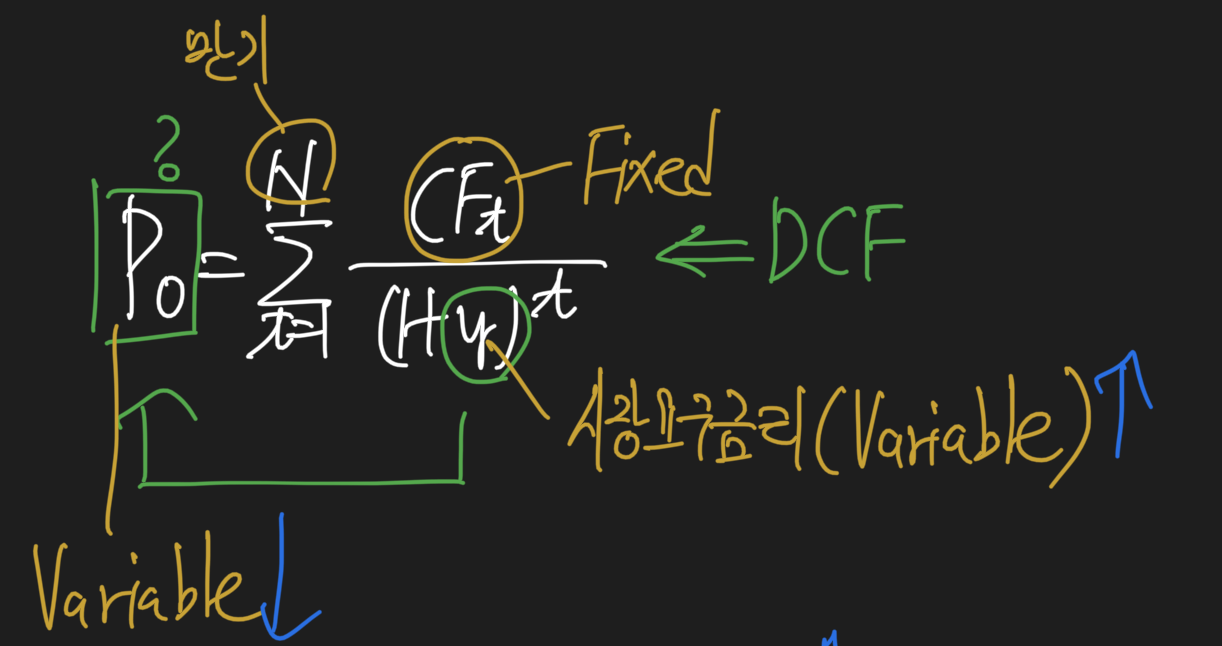 만기
?
P₀ = N Σ t=1 CFt / (1+y)^t
Fixed
⇐ DCF
시장요구금리(Variable) ↑
Variable ↓